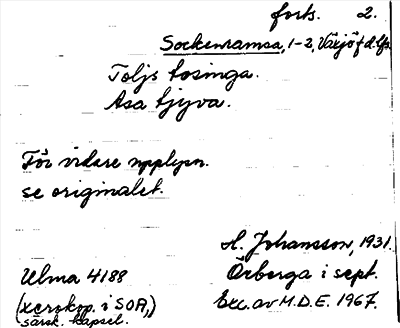 forts. 2.
Sockenramsa, 1-2, Växjö f.d. lfs.
Toljs tosinga.
Asa tjyva.
För vidare upplysn.
se originalet.
A. Johansson, 1931.
Ulma 4188 Örberga i sept.
(xerokop. i SOA,) Exc. av M.D.E. 1967.
särsk. kapsel.